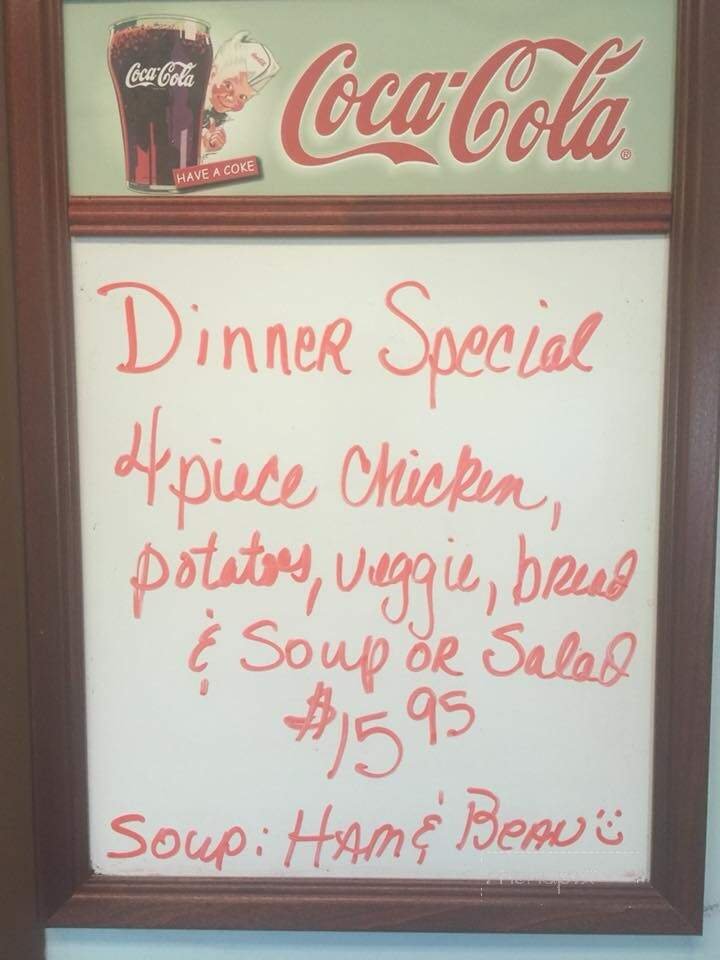 Coca-Cola
Coca-Cola®
HAVE A COKE
Dinner Special
4 piece Chicken,
potatoes, veggie, bread
& Soup or Salad
$15.95
Soup: Ham & Bean